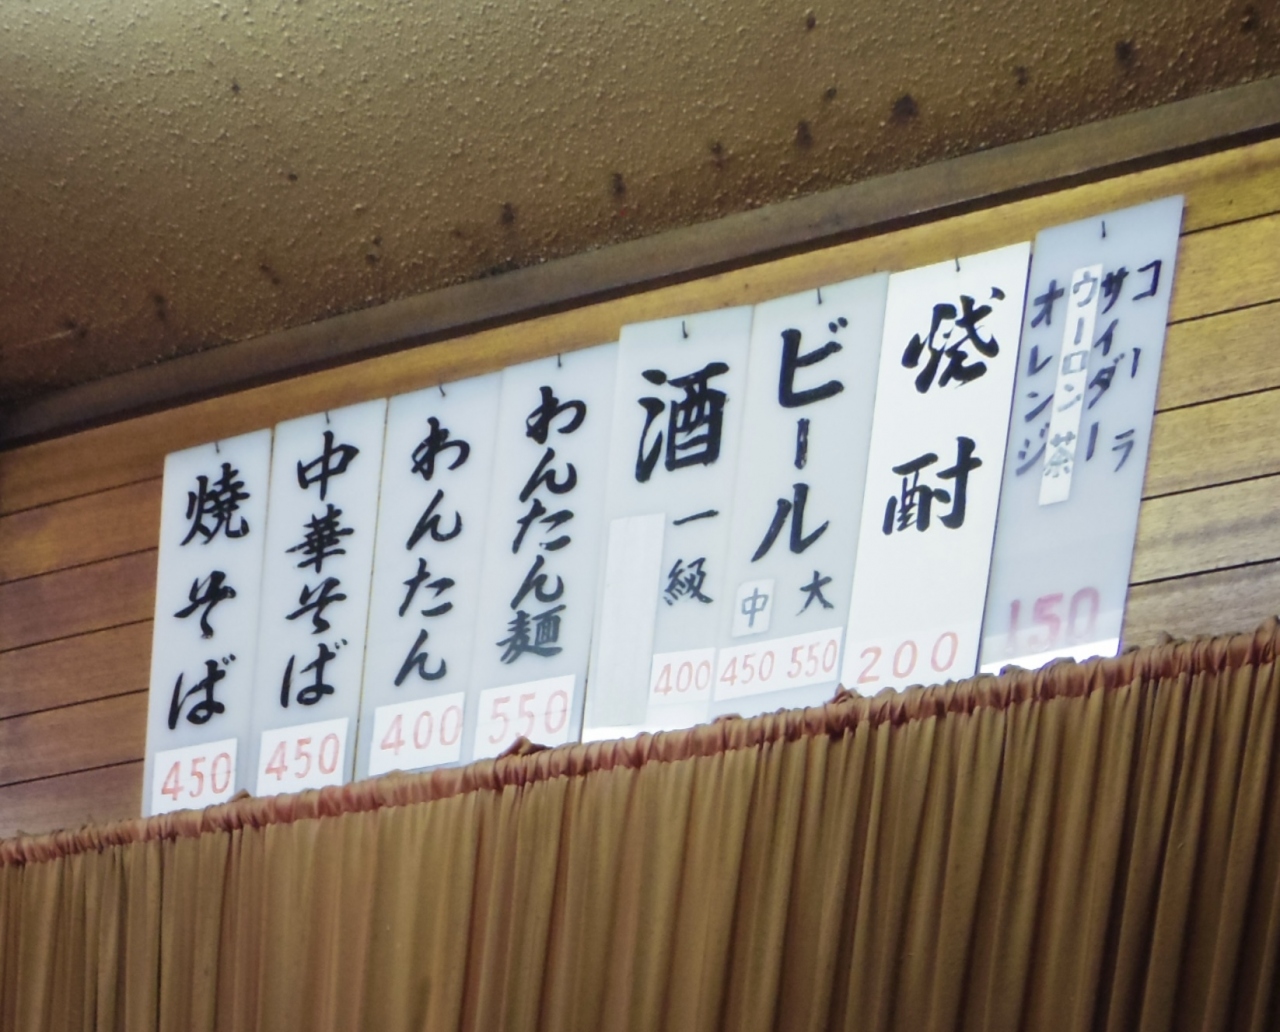 コーラ
サイダー
ウーロン茶
オレンジ
150
焼酎
200
ビール
大
550
中
450
酒
一級
400
わんたん麺
550
わんたん
400
中華そば
450
焼そば
450